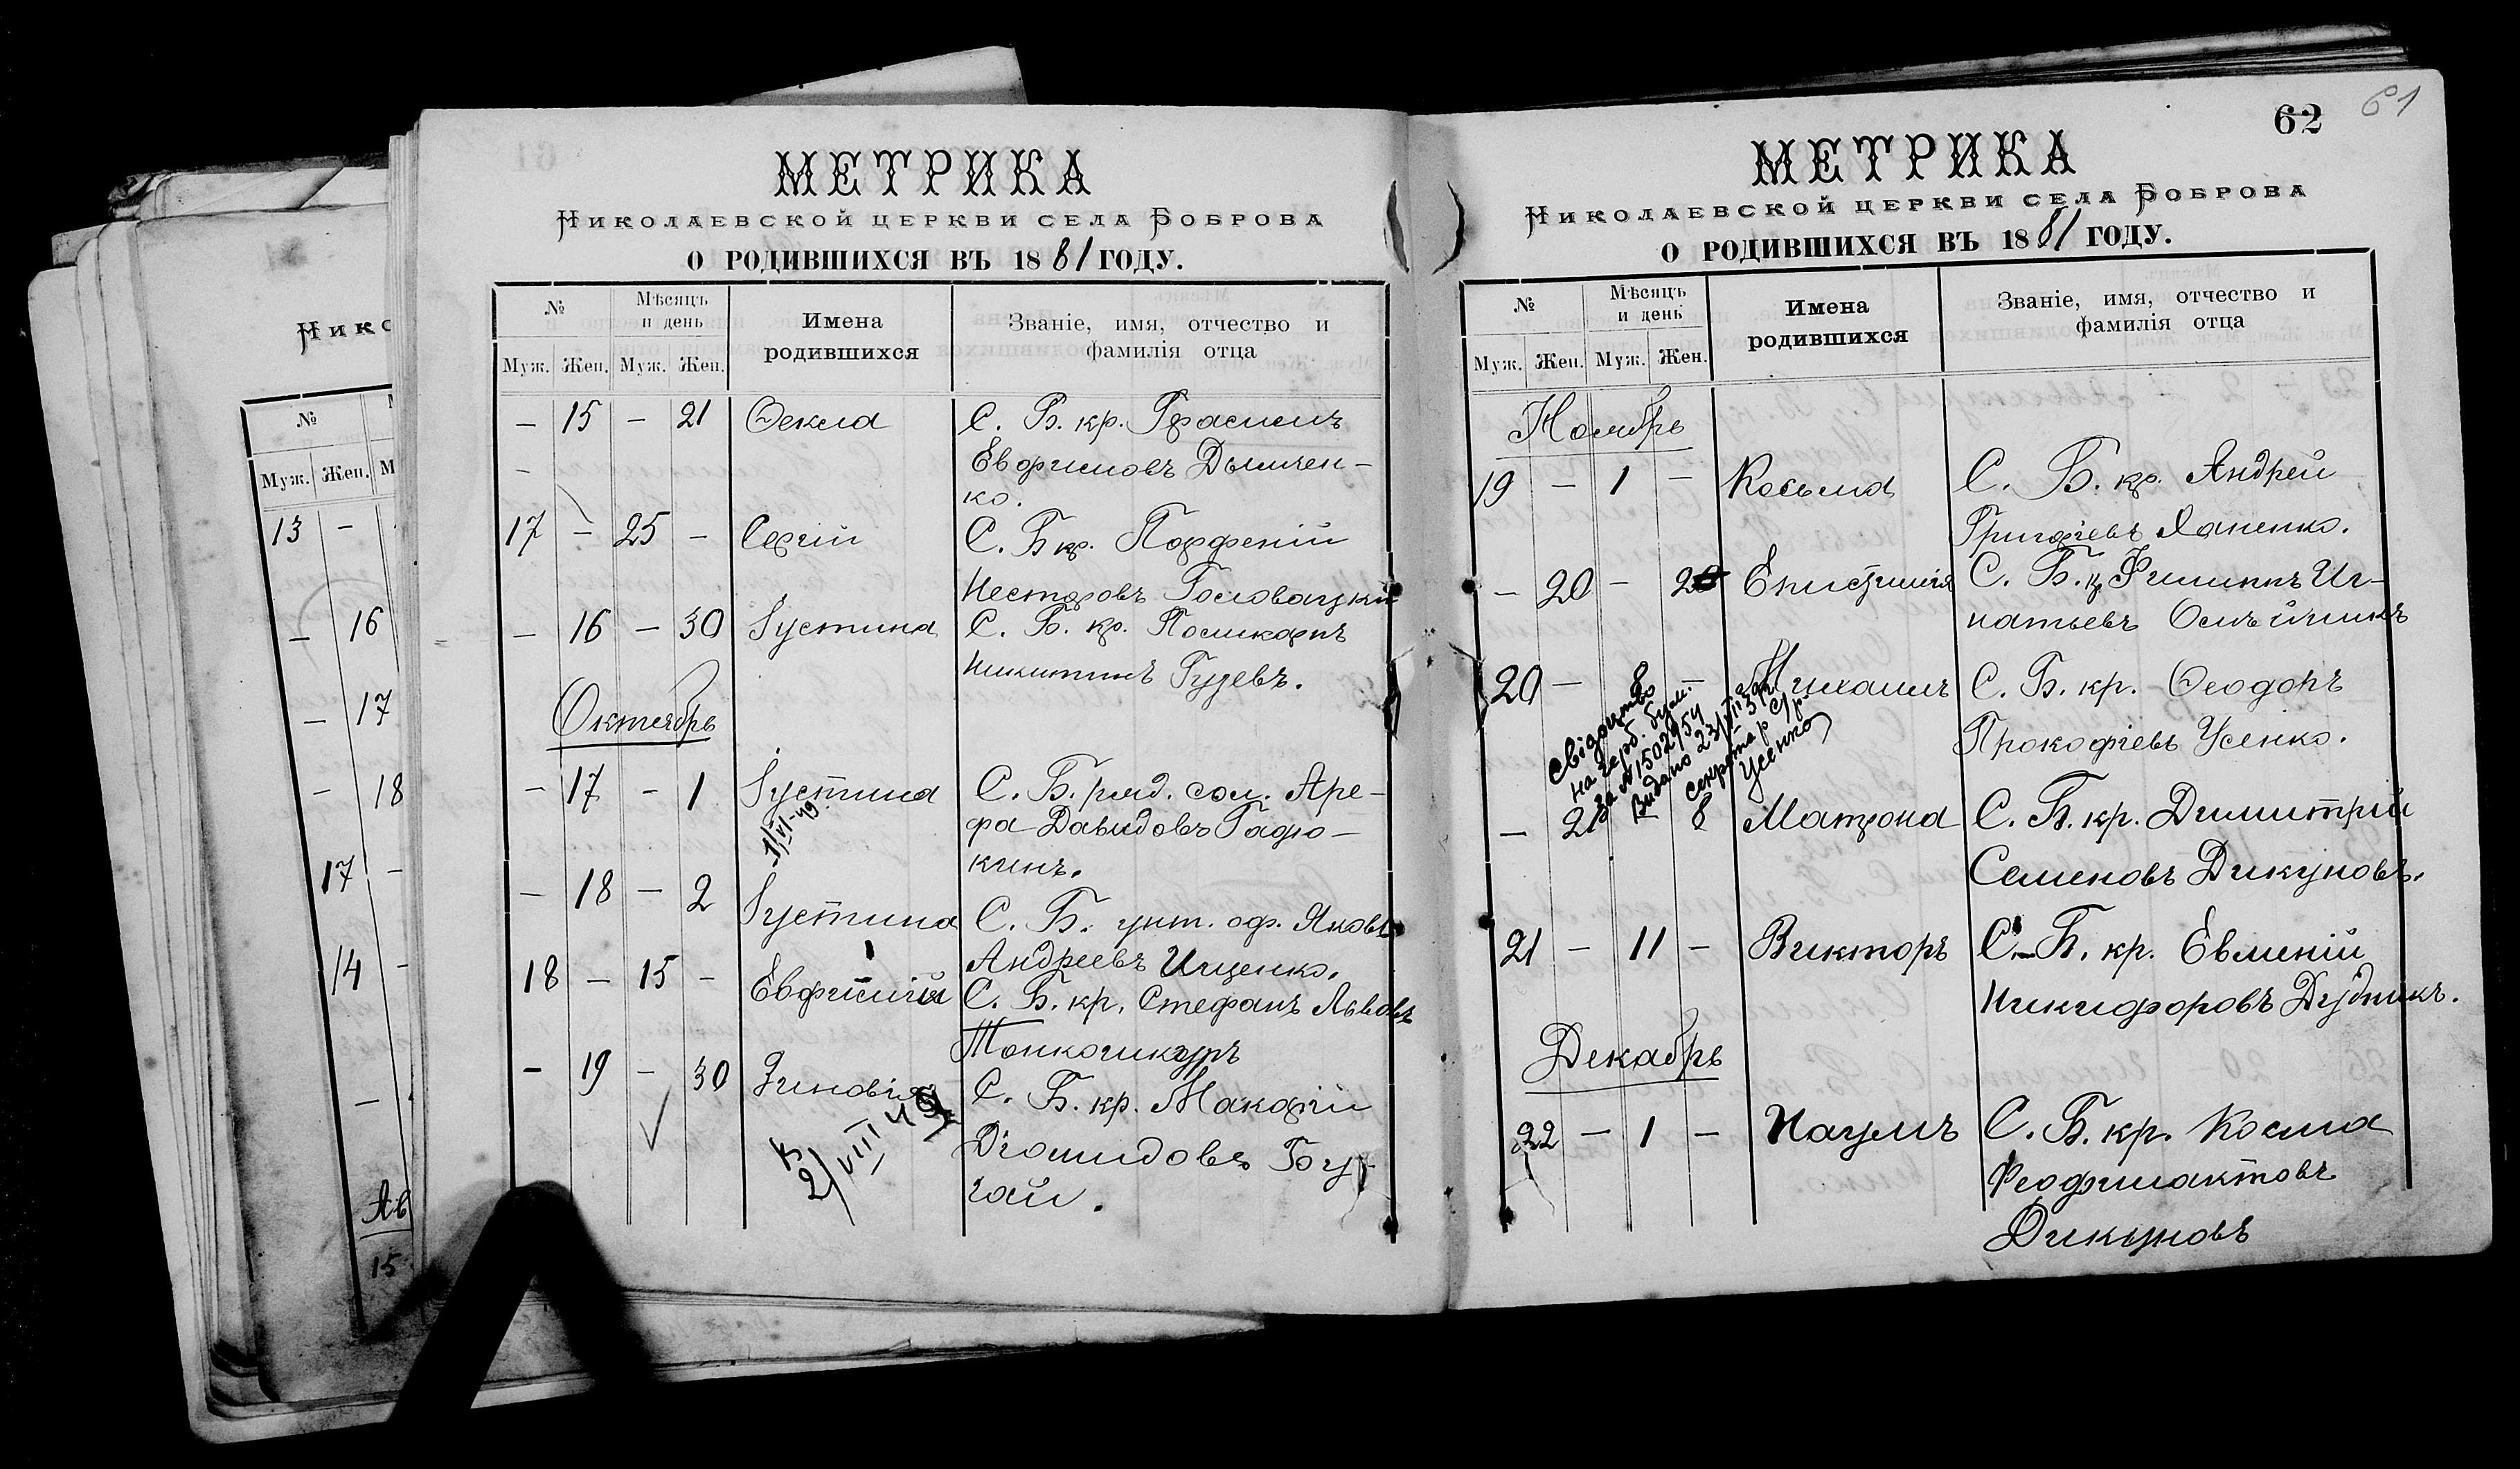 НИКО
№
Муж. Жен. М
13 -
- 16
- 17
- 18
17 -
14 -
-
Ав
15
МЕТРИКА
НИКОЛАЕВСКОЙ ЦЕРКВИ СЕЛА БОБРОВА
О РОДИВШИХСЯ ВЪ 1881 ГОДУ.
№ Мѣсяцъ и день Имена родившихся Званіе, имя, отчество и фамилія отца
Муж. Жен. Муж. Жен.
- 15 - 21 Ѳекла С. Б. кр. Герасимъ
- Евфимовъ Дымчен-
ко.
17 - 25 - Сергій С. Б. кр. Парфеній
Несторовъ Головацкій
- 16 - 30 Іустина С. Б. кр. Поликарпъ
Никитинъ Гузевъ.
Октябрь
- 17 - 1 Іустина С. Б. ряд. сол. Аре-
фа Давидовъ Гадю-
кинъ.
- 18 - 2 Іустина С. Б. унт. оф. Яковъ
Андреевъ Ищенко.
18 - 15 - Евфимій С. Б. кр. Стефанъ Львовъ
- 19 - 30 Зиновія С. Б. кр. Макарій
Діомидовъ Бу-
гай.
62 61
МЕТРИКА
НИКОЛАЕВСКОЙ ЦЕРКВИ СЕЛА БОБРОВА
О РОДИВШИХСЯ ВЪ 1881 ГОДУ.
№ Мѣсяцъ и день Имена родившихся Званіе, имя, отчество и фамилія отца
Муж. Жен. Муж. Жен.
Ноябрь
19 - 1 - Косьма С. Б. кр. Андрей
Григорьевъ Ханенко.
- 20 - Епистимія С. Б. кр. Филиппъ Иг-
натьевъ Олѣйникъ
20 - 8 - Михаилъ С. Б. кр. Ѳеодоръ
Прокофіевъ Усенко.
Свідоцтво
на герб. бум.
за № 1502954
Видано
секретар с/р
Усенко
- 21 - 8 Матрона С. Б. кр. Димитрій
Семеновъ Дикуновъ.
21 - 11 - Викторъ С. Б. кр. Евменій
Никифоровъ Дудникъ.
Декабрь
22 - 1 - Наумъ С. Б. кр. Косма
Феофилактовъ
Дикуновъ